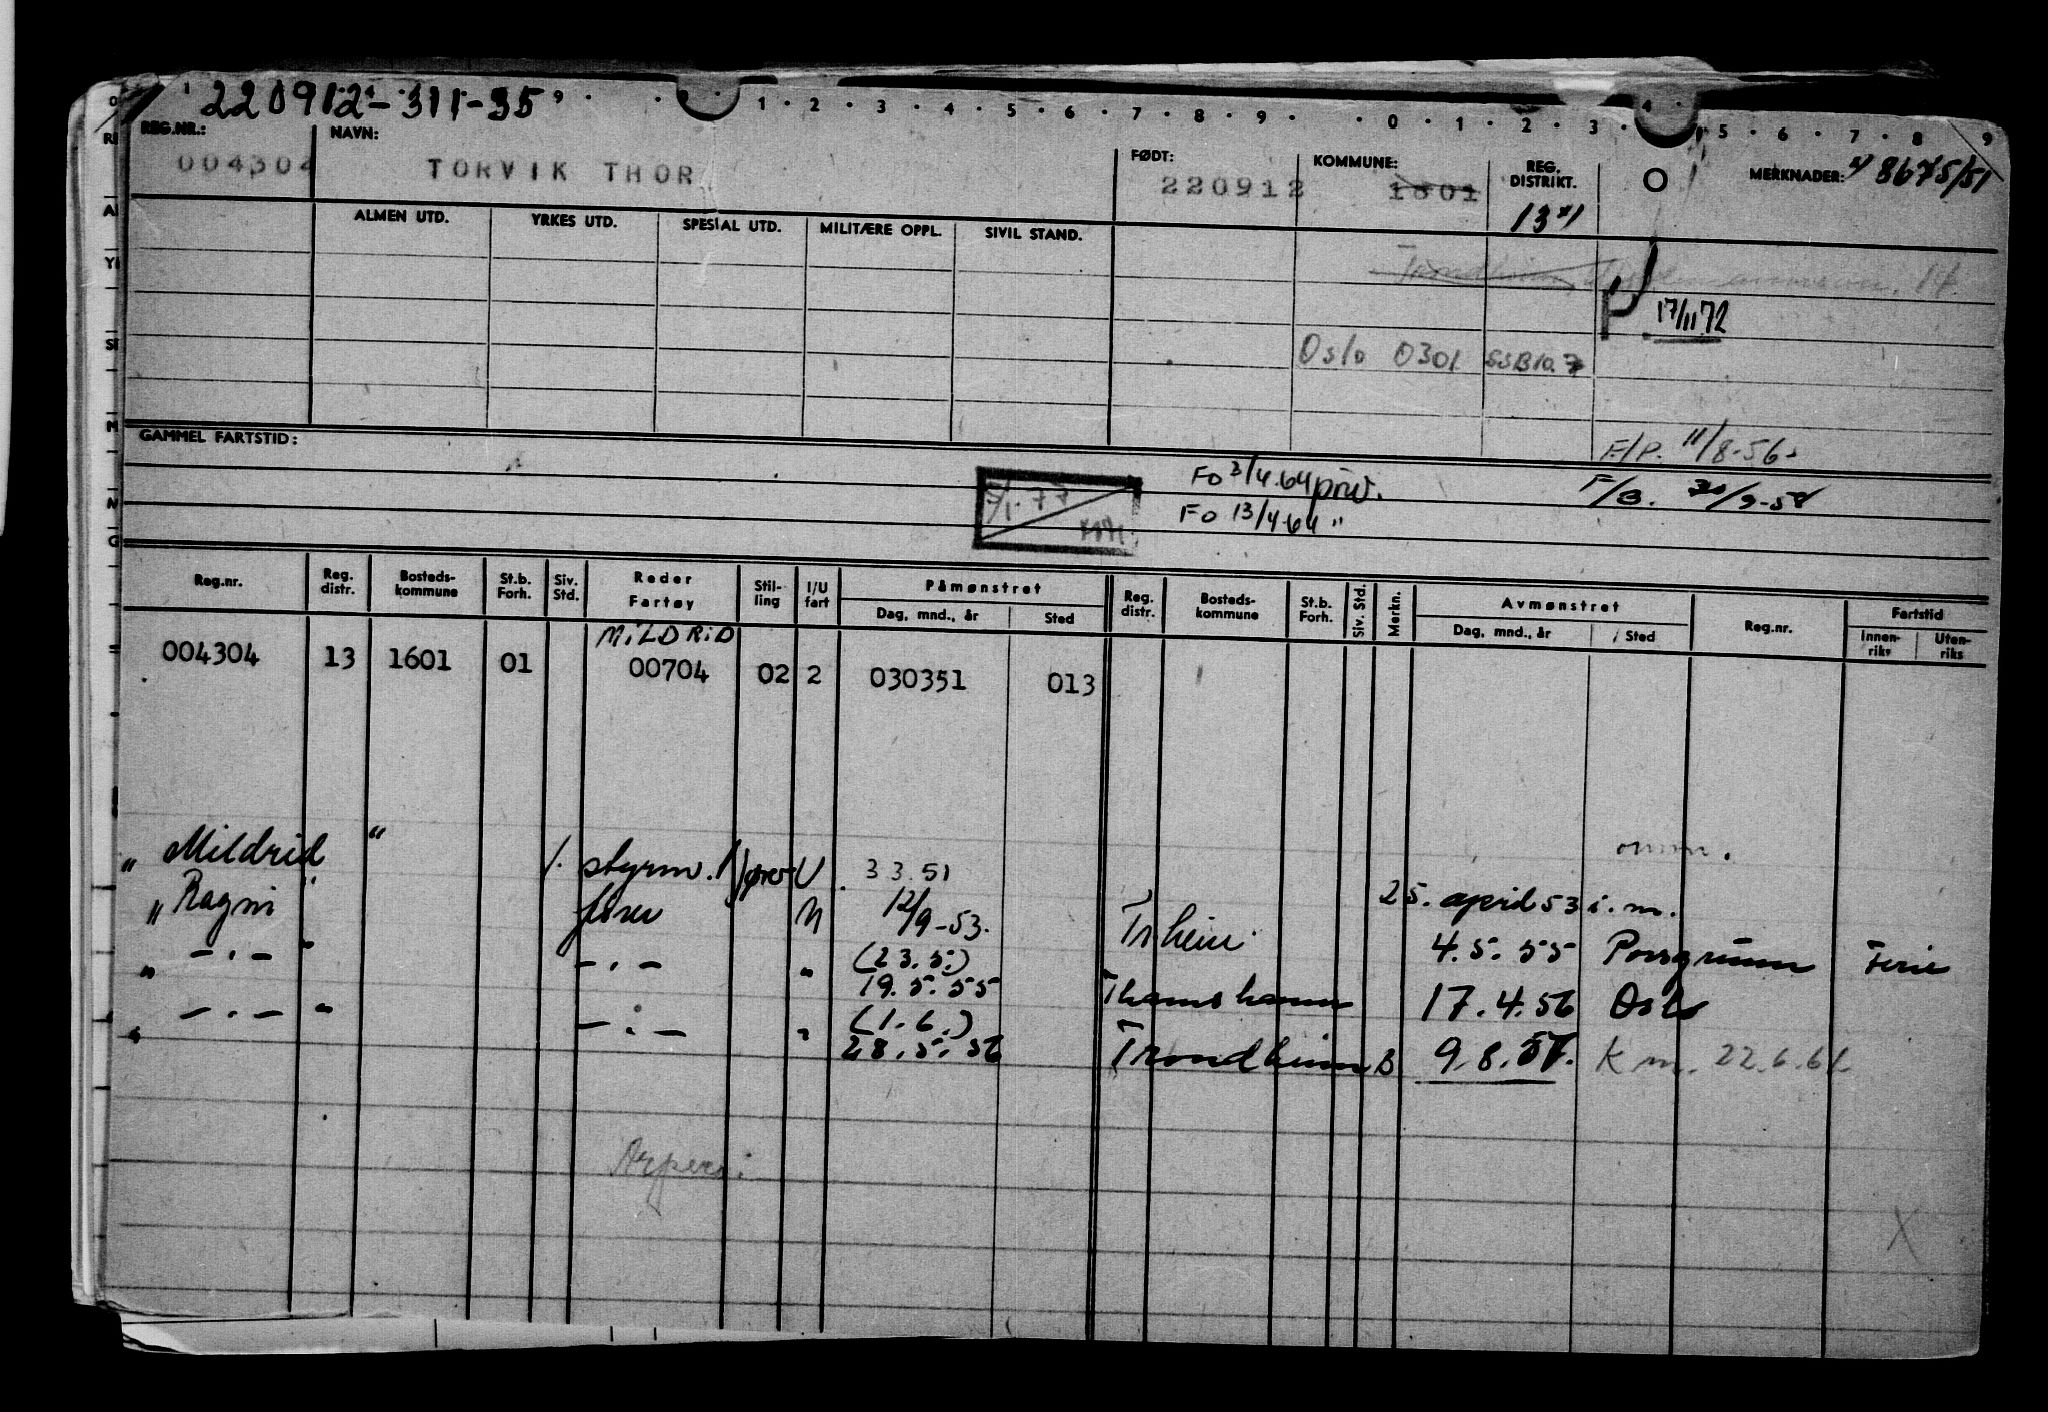 220912-311-35
REG.NR.: NAVN: FØDT: KOMMUNE: REG. DISTRIKT. MERKNADER: 8675/51
004304 TORVIK THOR 220912 1601 13
ALMEN UTD. YRKES UTD. SPESIAL UTD. MILITÆRE OPPL. SIVIL STAND.
Trondheim 14
17/11 72
Oslo 0301
F/P. 11/8-56
GAMMEL FARTSTID:
Fo 3/4.64 priv. F/B. 30/9-58
7/1.77 Fo 13/4-64 "
Reg.nr. Reg. distr. Bosteds-kommune St.b. Forh. Siv. Std. Reder Fartøy Stil-ling I/U fart Påmønstret Dag, mnd., år Sted Reg. distr. Bosteds-kommune St.b. Forh. Siv. Std. Merkn. Avmønstret Dag, mnd., år Sted Reg.nr. Fartstid Innen-riks Uten-riks
MILDRID
004304 13 1601 01 00704 02 2 030351 013
" Mildrid " 1. styrm. U 3 3.51
25. april 53 i.m.
" Ragni " fører 12/9-53. Tr.heim 4.5.55 Porsgrunn Ferie
" - . - " - . - " (23.5.)
19.5.55 Thamshamn 17.4.56 Oslo
" - . - " - . - " (1.6.)
28.5.56 Trondheim B 9.8.57. K m. 22.6.61
X